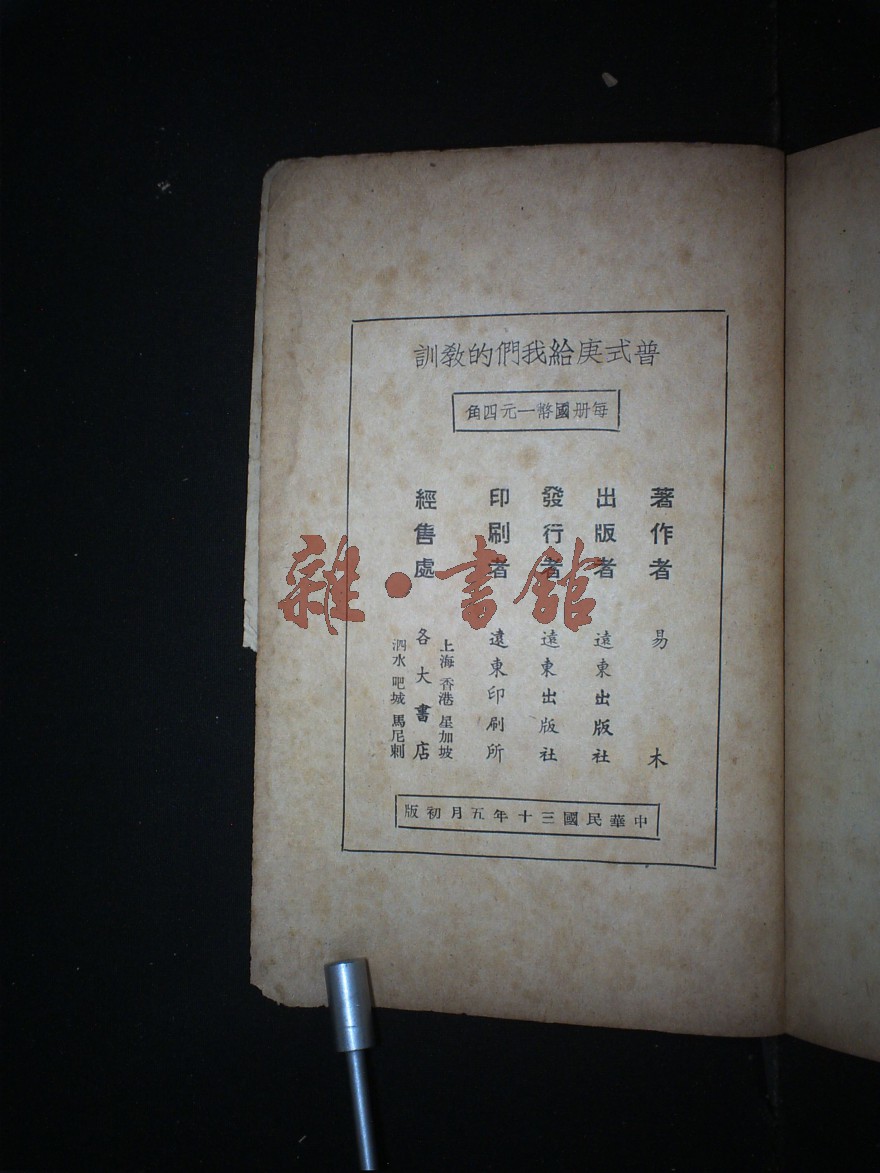 普式庚給我們的敎訓
每册國幣一元四角
著作者 易木
出版者 遠東出版社
發行者 遠東出版社
印刷者 遠東印刷所
經售處
上海 香港 星加坡
各大書店
泗水 吧城 馬尼剌
中華民國三十年五月初版
雜·書館